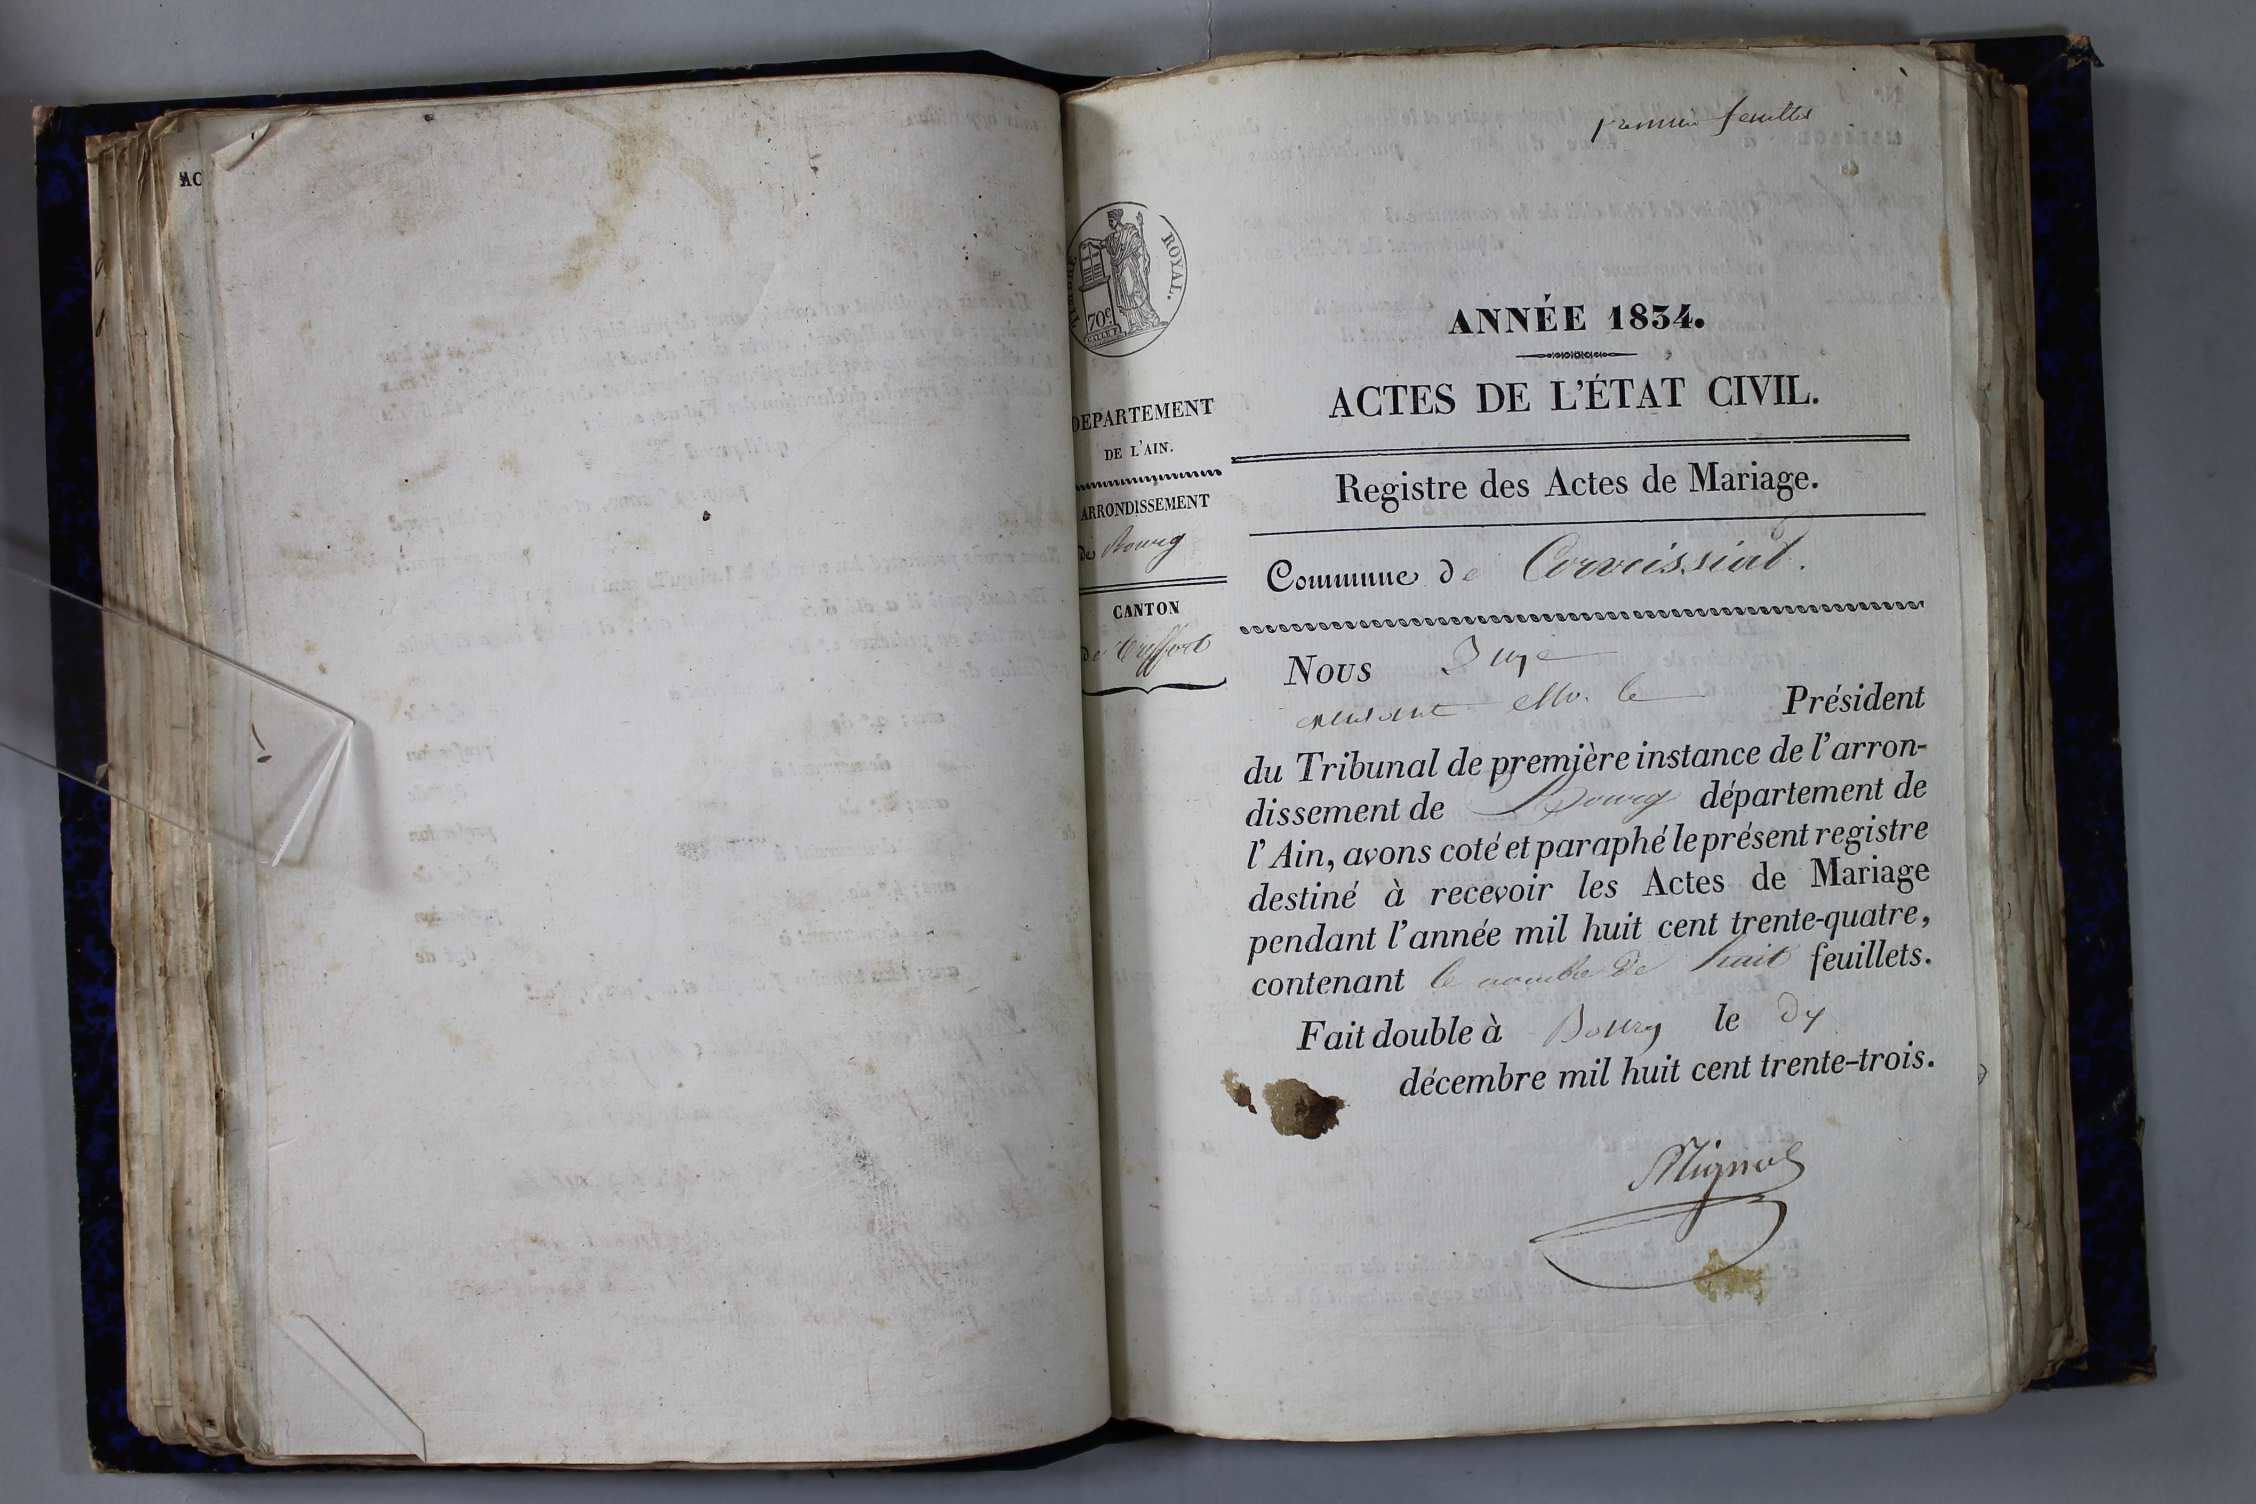 AC
premier feuillet
TIMBRE ROYAL.
70c.
ANNÉE 1834.
ACTES DE L'ÉTAT CIVIL.
DEPARTEMENT
DE L'AIN.
ARRONDISSEMENT
de Bourg
CANTON
de Treffort
Registre des Actes de Mariage.
Commune de Corveissiat.
Nous Juge
le Président
du Tribunal de première instance de l'arron-
dissement de Bourg département de
l'Ain, avons coté et paraphé le présent registre
destiné à recevoir les Actes de Mariage
pendant l'année mil huit cent trente-quatre,
contenant le nombre de huit feuillets.
Fait double à Bourg le dix
décembre mil huit cent trente-trois.